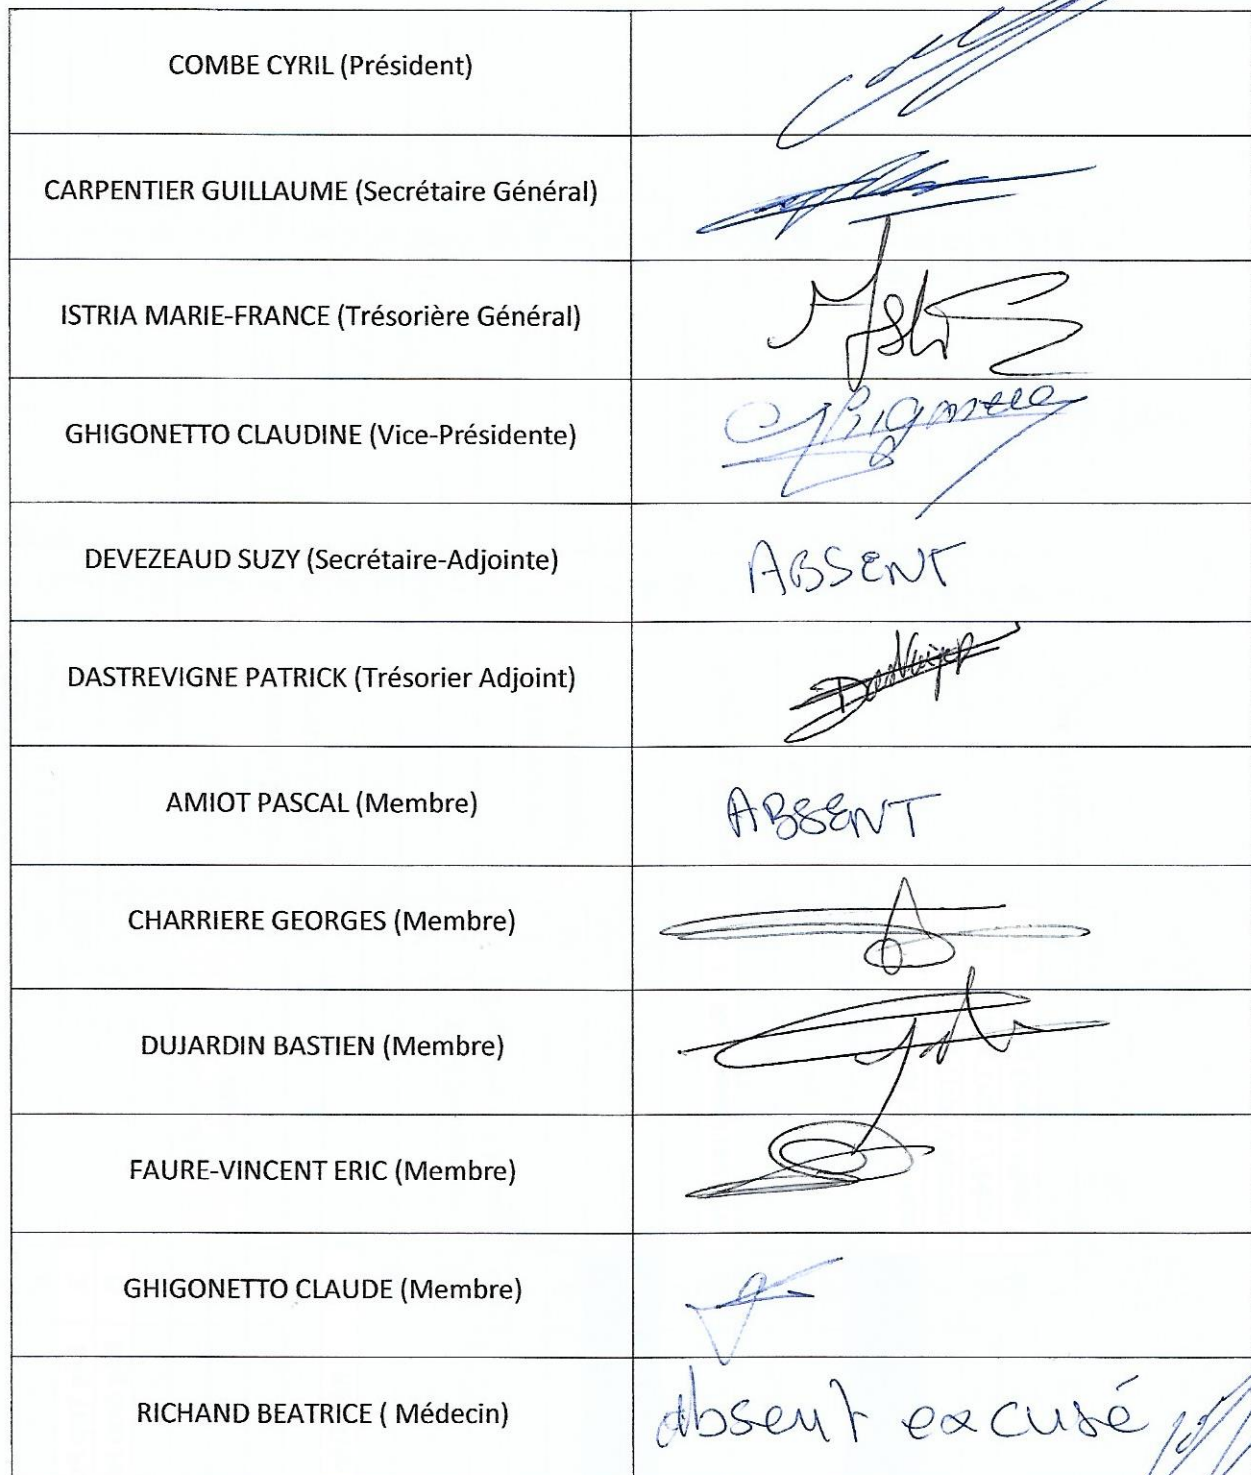 COMBE CYRIL (Président)
CARPENTIER GUILLAUME (Secrétaire Général)
ISTRIA MARIE-FRANCE (Trésorière Général)
GHIGONETTO CLAUDINE (Vice-Présidente)
DEVEZEAUD SUZY (Secrétaire-Adjointe) ABSENT
DASTREVIGNE PATRICK (Trésorier Adjoint)
AMIOT PASCAL (Membre) ABSENT
CHARRIERE GEORGES (Membre)
DUJARDIN BASTIEN (Membre)
FAURE-VINCENT ERIC (Membre)
GHIGONETTO CLAUDE (Membre)
RICHAND BEATRICE ( Médecin) absent excusé